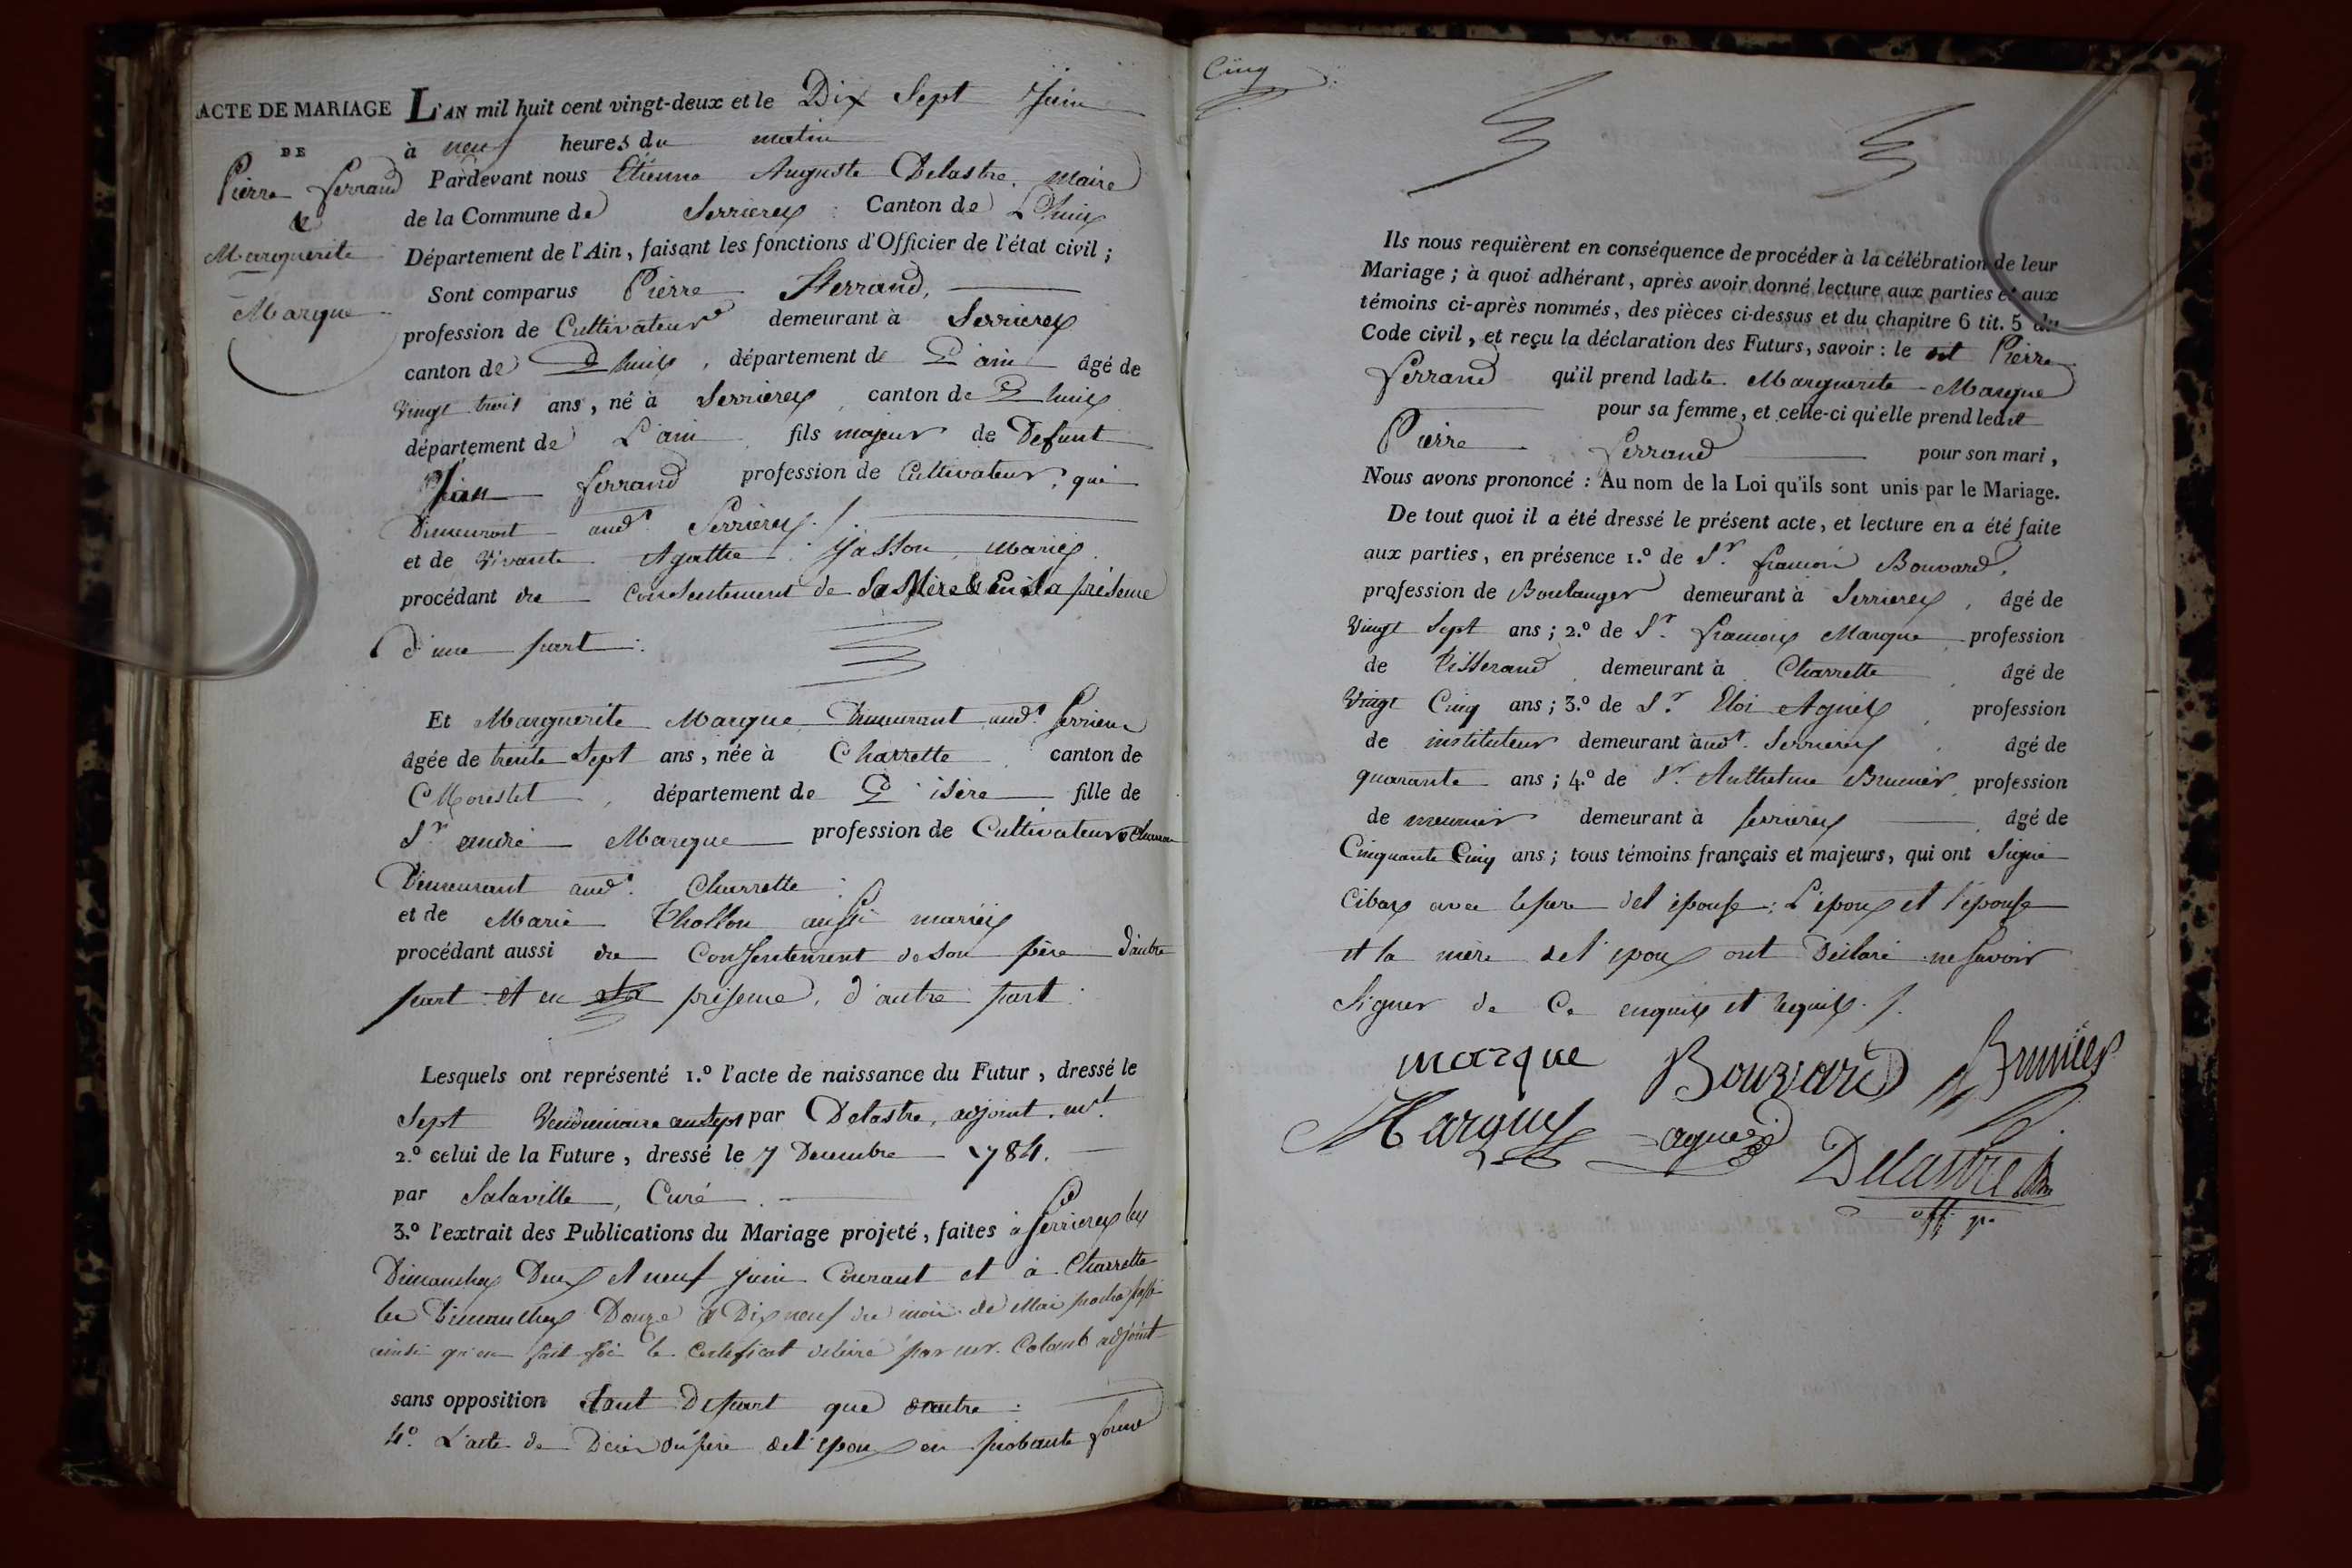 ACTE DE MARIAGE
DE
Pierre ferrand
&
Marguerite
Marque
L'AN mil huit cent vingt-deux et le Dix Sept Juin
à neuf heures du matin
Pardevant nous Etienne Auguste Delastre, maire
de la Commune de Serrieres Canton de Lhuis
Département de l'Ain, faisant les fonctions d'Officier de l'état civil ;
Sont comparus Pierre Ferrand,
profession de Cultivateur demeurant à Serrieres
canton de Lhuis, département de L'ain âgé de
vingt trois ans, né à Serrieres, canton de Lhuis
département de L'ain fils majeur de Defunt
Jean ferrand profession de Cultivateur, qui
Demeurant aud.t Serrieres
et de vivante Agathe Jasson, mariés
procédant du Consentement de Sa Mère & En Sa présence
d'une part.
Et Marguerite Marque Demeurant aud.t Serriere
âgée de trente Sept ans, née à Charrette canton de
Morestel, département de L'isère fille de
S.r andré Marque profession de Cultivateur
Demeurant aud.t Charrette
et de Marie Thollon aussi mariés
procédant aussi du Consentement de son père d'autre
part et en présence, d'autre part
Lesquels ont représenté 1.º l'acte de naissance du Futur, dressé le
Sept Vendemiaire an Sept par Delastre, adjoint
2.º celui de la Future, dressé le 7 Decembre 1784.
par Salaville, Curé.
3.º l'extrait des Publications du Mariage projeté, faites à Serrieres les
Dimanches Deux et neuf juin Courant et à Charrette
les Dimanches Douze & Dix neuf du mois de Mai proche passé
ainsi qu'en fait foi le Certificat délivré par mr. Colomb adjoint
sans opposition tant De part que d'autre.
4.º L'acte de Décès du père de l'epoux en probante forme
Cinq
Ils nous requièrent en conséquence de procéder à la célébration de leur
Mariage ; à quoi adhérant, après avoir donné lecture aux parties et aux
témoins ci-après nommés, des pièces ci-dessus et du chapitre 6 tit. 5 du
Code civil, et reçu la déclaration des Futurs, savoir : le dit Pierre
Ferrand qu'il prend ladite Marguerite Marque
pour sa femme, et celle-ci qu'elle prend ledit
Pierre Ferrand pour son mari,
Nous avons prononcé : Au nom de la Loi qu'ils sont unis par le Mariage.
De tout quoi il a été dressé le présent acte, et lecture en a été faite
aux parties, en présence 1.º de S.r francois Bouvard,
profession de Boulanger demeurant à Serrieres, âgé de
Vingt Sept ans ; 2.º de S.r francois Marque profession
de tisserand demeurant à Charrette âgé de
Vingt Cinq ans ; 3.º de S.r Eloi Agniel profession
de instituteur demeurant aud.t Serrieres âgé de
quarante ans ; 4.º de S.r Brunier profession
de meunier demeurant à Serrieres âgé de
Cinquante Cinq ans ; tous témoins français et majeurs, qui ont Signé
Cibas avec le pere de l'epouse ; L'epoux et l'epouse
et la mère de l'epoux ont Déclaré ne Savoir
Signer de Ce enquis et requis.
marque Bouvard Brunier
Marque
Delastre
off. p.